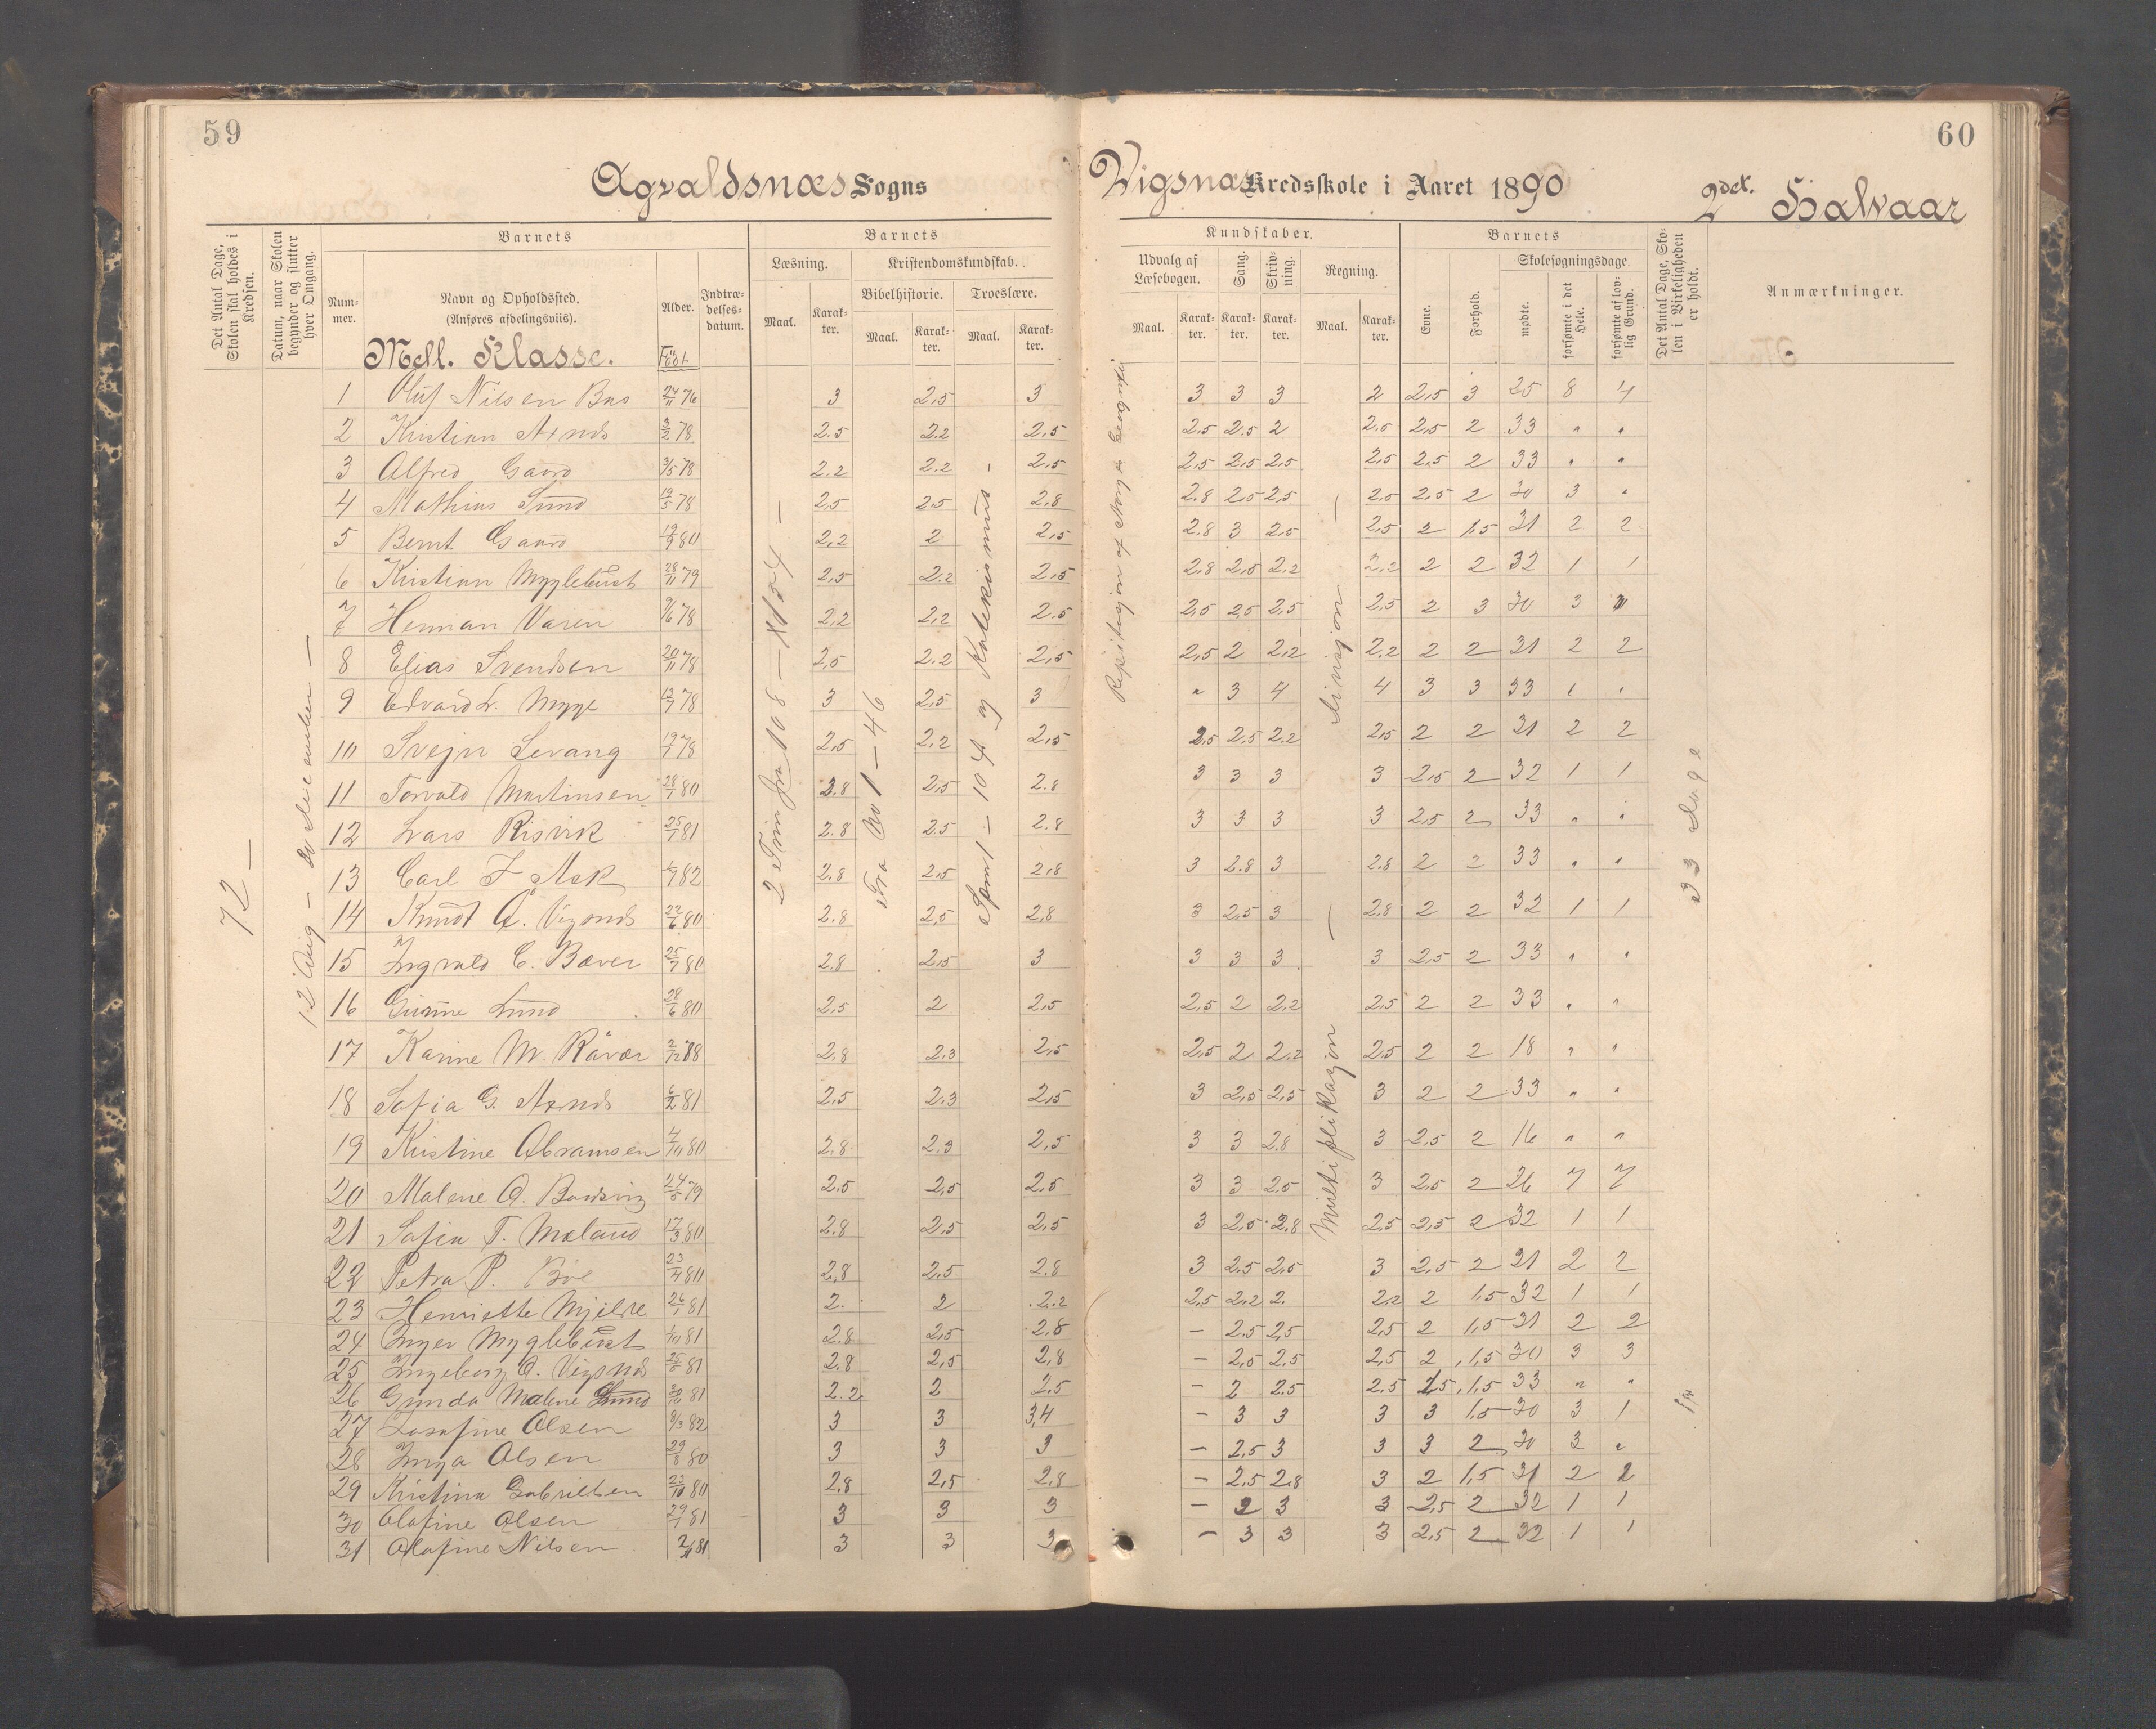 59
60
Agvaldsnæs Sogns
Vigsnæs Kredsskole i Aaret 1890
2det. Halvaar
Det Antal Dage, Skolen skal holdes i Kredsen.
Datum, naar Skolen begynder og slutter hver Omgang.
Barnets
Barnets
Kundskaber.
Barnets
Num-mer.
Navn og Opholdssted.
(Anføres afdelingsviis).
Alder.
Indtræ-delses-datum.
Læsning.
Kristendomskundskab.
Bibelhistorie.
Troeslære.
Maal.
Karak-ter.
Maal.
Karak-ter.
Maal.
Karak-ter.
Udvalg af Læsebogen.
Sang.
Skriv-ning.
Regning.
Maal.
Karak-ter.
Karak-ter.
Karak-ter.
Maal.
Karak-ter.
Evne.
Forhold.
Skolesøgningsdage
mødte.
forsømte i det Hele.
forsømte af lov-lig Grund.
Det Antal Dage, Sko-len i Virkeligheden er holdt.
Anmærkninger.
Mell. Klasse. Født
72 –
2 Tim fra 108 –
Fra No 1 – 46
104 og Katekismus
Multiplikasjon –
33 Dage
1 Oluf Nilsen 24/11 76 3 2,5 3 3 3 3 2 2,5 3 25 8 4
2 Kristian 78 2.5 2.2 2,5 2,5 2.5 2 2.5 2,5 2 33 " "
3 Alfred Gaard 9/5 78 2.2 2.2 2,5 2,5 2,5 2,5 2,5 2,5 2 33 " "
4 Mathias Lund 19/5 78 2,5 2,5 2,8 2.8 2,5 2,5 2,5 2,5 2 30 3 "
5 Bernt Gaard 19/9 80 2,2 2 2,5 2.8 3 2,5 2,5 2 1,5 31 2 2
6 Kristian Myglebust 28/11 79 2,5 2.2 2,5 2,8 2,5 2,2 2,2 2 2 32 1 1
7 Herman Varen 9/6 78 2,2 2,2 2.5 2,5 2,5 2,5 2,5 2 3 30 3
8 Elias Svendsen 20/11 78 2,5 2.2 2,5 2,5 2 2,2 2.2 2 2 31 2 2
9 Edvard L. Myge 78 3 2,5 3 " 3 4 4 3 3 33 " "
10 Svejn Levang 78 2,5 2,2 2,5 2,5 2.5 2.2 2,5 2 2 31 2 2
11 Torvald Martinsen 28/1 80 2.8 2,5 2.8 3 3 3 3 2,5 2 32 1 1
12 Lars Risvik 25/1 81 2.8 2.5 2.8 3 3 3 3 2,5 2 33 " "
13 Carl F Ask 82 2.8 2,5 2,8 3 2.8 3 2.8 2 2 33 " "
14 Knudt A. Vigsnæs 22/6 80 2.8 2,5 2,8 3 2,5 3 2.8 2 2 32 1 1
15 Ingvald C. Bæver 25/7 80 2.8 2,5 3 3 3 3 3 2,5 2 33 " "
16 Gunne Lund 28/6 80 2,5 2 2,5 2,5 2 2,2 2,5 2 2 33 " "
17 Karine M. Røvær 2/12 2,8 2.3 2,5 2,5 2 2,2 2,5 2 2 18 " "
18 Sofia G. 6/2 81 2,5 2.3 2,5 3 2,5 2,5 3 2 2 33 " "
19 Kristine Abramsen 4/10 80 2,8 2,3 2,5 3 3 2.8 3 2,5 2 16 " "
20 Malene A. 24/5 79 2.5 2,5 2,5 3 3 2,5 3 2,5 2 26 7 7
21 Sofia T. Mæland 17/3 80 2.8 2,5 2,5 3 2,5 2,8 2,5 2,5 2 32 1 1
22 Petra P. Boe 23/4 80 2,8 2,5 2.8 3 2,5 2,5 3 2,5 2 31 2 2
23 Henriette Mjelde 26/1 81 2. 2 2.2 2,5 2,2 2. 2,2 2 1,5 32 1 1
24 Inger Myglebust 1/10 81 2.8 2,5 2.8 – 2.5 2,5 2,5 2 1,5 31 2 2
25 Ingeborg A. Vigsnæs 81 2.8 2,5 2,8 – 2,5 2,5 2,5 2 1,5 30 3 3
26 Gunda Malene Lund 81 2.2 2 2,5 – 2 2.5 2.5 1,5 33 " "
27 Josefine Olsen 8/3 82 3 3 3,4 – 3 3 3 3 1,5 30 3 1
28 Inga Olsen 29/8 80 3 3 3 – 2,5 3 3 3 2 30 3 "
29 Kristina Gabrielsen 23/10 80 2.8 2,5 2,8 – 2,5 2,8 3 2 1,5 31 2 2
30 Olafine Olsen 29/1 81 3 3 3 – 2 3 3 2,5 2 32 1 1
31 Olafine Nilsen 81 3 3 3 – 3 3 3 2,5 2 32 1 1